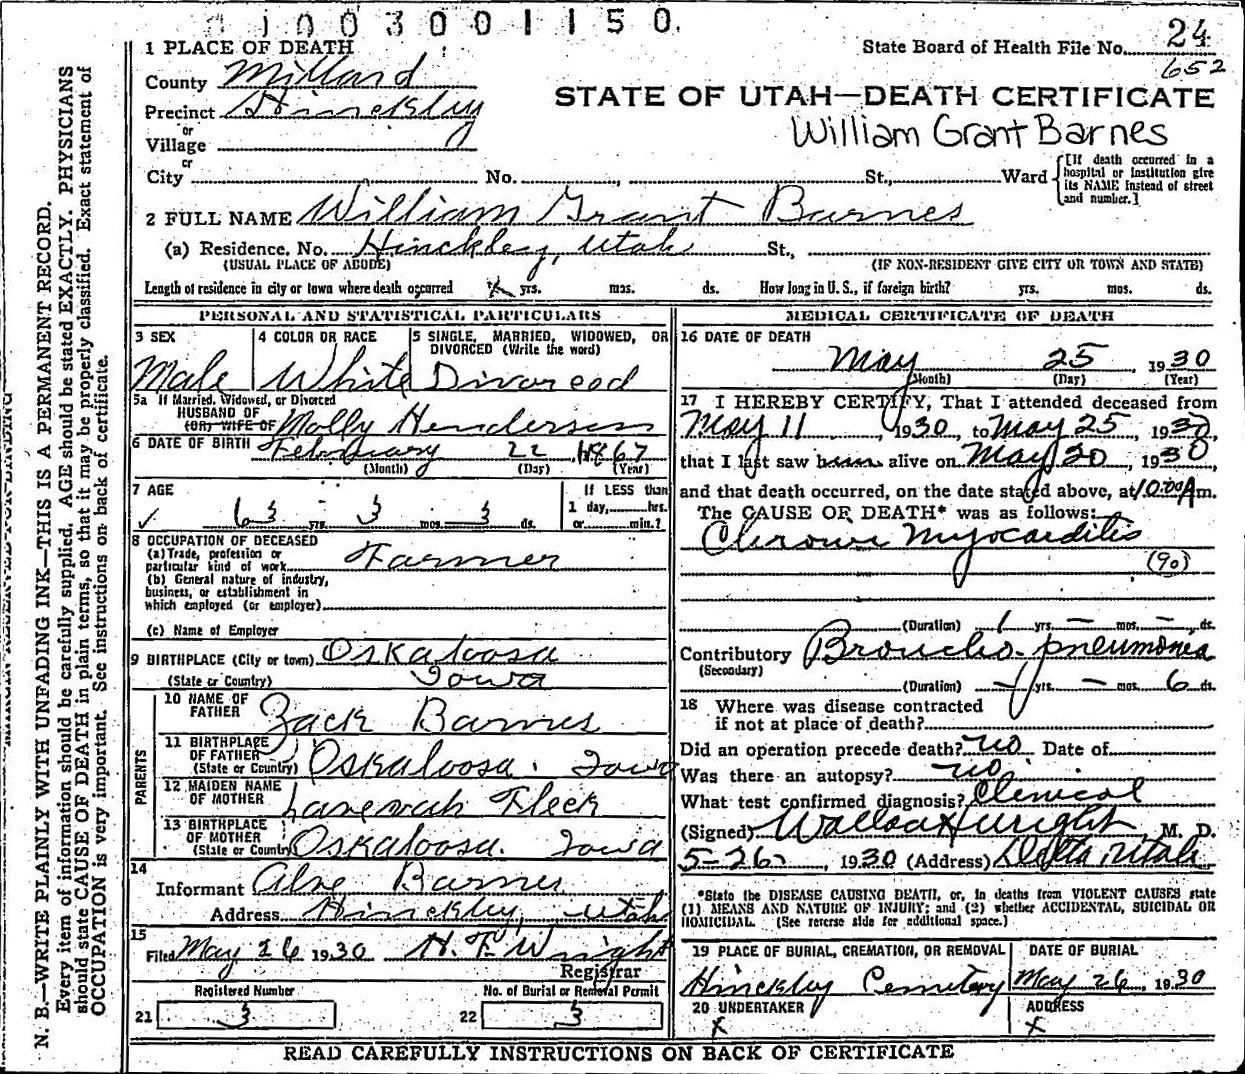 1003001150.
24
State Board of Health File No.
652
1 PLACE OF DEATH
County Millard
Precinct Hinckley
or
Village
or
City No. , St., Ward
STATE OF UTAH—DEATH CERTIFICATE
William Grant Barnes
[If death occurred in a
hospital or institution give
its NAME instead of street
and number.]
2 FULL NAME William Grant Barnes
(a) Residence. No. Hinckley, Utah St.,
(USUAL PLACE OF ABODE) (IF NON-RESIDENT GIVE CITY OR TOWN AND STATE)
Length of residence in city or town where death occurred yrs. mos. ds. How long in U. S., if foreign birth? yrs. mos. ds.
PERSONAL AND STATISTICAL PARTICULARS
3 SEX 4 COLOR OR RACE 5 SINGLE, MARRIED, WIDOWED, OR
DIVORCED (Write the word)
Male White Divorced
5a If Married, Widowed, or Divorced
HUSBAND OF
(OR) WIFE OF Molly Henderson
6 DATE OF BIRTH February 22, 1867
(Month) (Day) (Year)
7 AGE If LESS than
63 yrs. 3 mos. 3 ds. 1 day, hrs.
or min.?
8 OCCUPATION OF DECEASED
(a) Trade, profession or
particular kind of work Farmer
(b) General nature of industry,
business, or establishment in
which employed (or employer)
(c) Name of Employer
9 BIRTHPLACE (City or town) Oskaloosa
(State or Country) Iowa
PARENTS
10 NAME OF
FATHER Zack Barnes
11 BIRTHPLACE
OF FATHER
(State or Country) Oskaloosa. Iowa
12 MAIDEN NAME
OF MOTHER Fleck
13 BIRTHPLACE
OF MOTHER
(State or Country) Oskaloosa. Iowa
14
Informant Barnes
Address Hinckley, Utah
15
Filed May 26 1930 H. F. Wright
Registrar
Registered Number No. of Burial or Removal Permit
21 3 22 3
MEDICAL CERTIFICATE OF DEATH
16 DATE OF DEATH
May 25, 1930
(Month) (Day) (Year)
17 I HEREBY CERTIFY, That I attended deceased from
May 11, 1930, to May 25, 1930,
that I last saw him alive on May 20, 1930,
and that death occurred, on the date stated above, at 10:00 A m.
The CAUSE OF DEATH* was as follows:
Chronic Myocarditis
(90)
(Duration) 1 yrs. — mos. — ds.
Contributory Broncho-pneumonia
(Secondary)
(Duration) — yrs. — mos. 6 ds.
18 Where was disease contracted
if not at place of death?
Did an operation precede death? no Date of
Was there an autopsy? no
What test confirmed diagnosis? Clinical
(Signed) Wright, M. D.
5-26, 1930 (Address) Delta, Utah
*State the DISEASE CAUSING DEATH, or, in deaths from VIOLENT CAUSES state
(1) MEANS AND NATURE OF INJURY; and (2) whether ACCIDENTAL, SUICIDAL OR
HOMICIDAL. (See reverse side for additional space.)
19 PLACE OF BURIAL, CREMATION, OR REMOVAL DATE OF BURIAL
Hinckley Cemetery May 26, 1930
20 UNDERTAKER ADDRESS
x x
READ CAREFULLY INSTRUCTIONS ON BACK OF CERTIFICATE
N. B.—WRITE PLAINLY WITH UNFADING INK—THIS IS A PERMANENT RECORD.
Every item of information should be carefully supplied. AGE should be stated EXACTLY. PHYSICIANS
should state CAUSE OF DEATH in plain terms, so that it may be properly classified. Exact statement of
OCCUPATION is very important. See instructions on back of certificate.